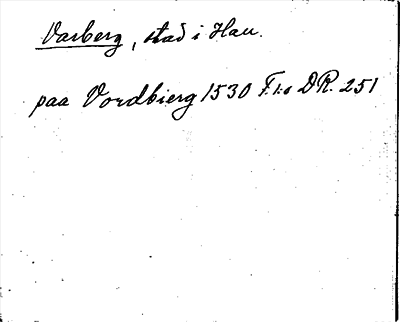 Varberg, stad i Hall.
paa Vordbierg 1530 F.1.s DR. 251